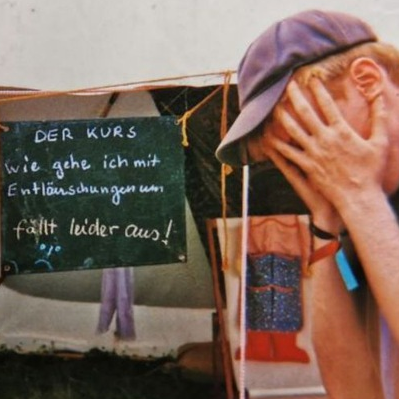 DER KURS
Wie gehe ich mit
Enttäuschungen um
fällt leider aus!